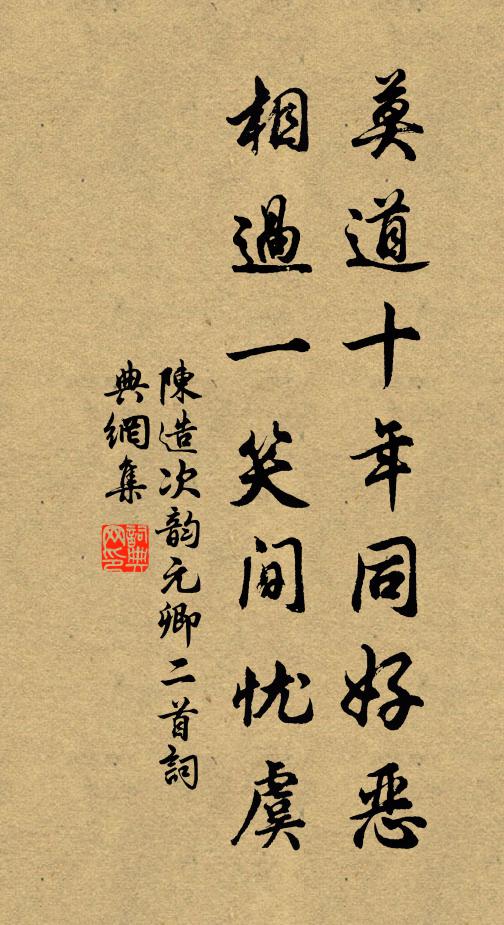 莫道十年同好恶
相過一笑間忧虞
陳造次韵元卿二首詞
典網集
詞典网印